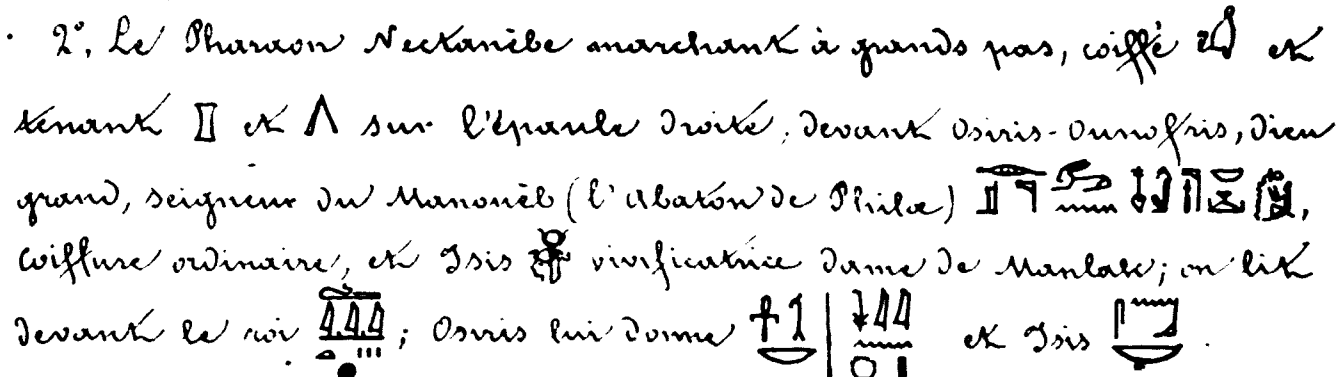 2°. Le Pharaon Nectanèbe marchant à grands pas, coiffé et
tenant et sur l'épaule droite, devant Osiris-Ounofris, Dieu
grand, seigneur du Manouêb (l'Abaton de Philæ),
coiffure ordinaire, et Isis vivificatrice dame de Manlak; on lit
devant le roi ; Osiris lui donne et Isis .